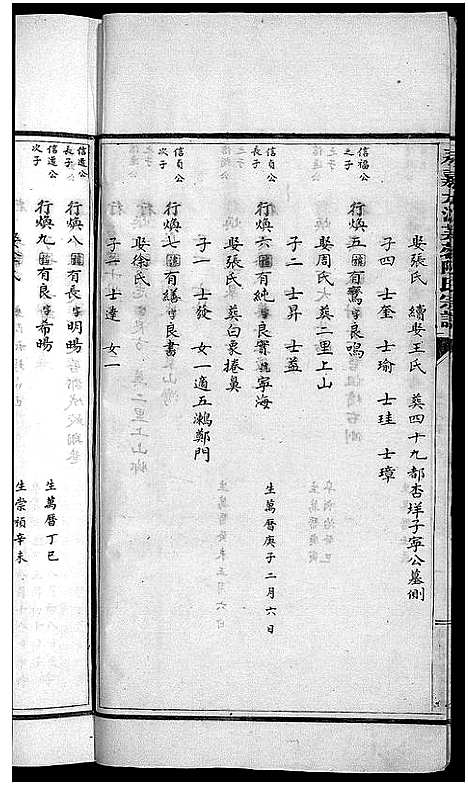 娶張氏 續娶王氏 葬四十九都杏垟子寧公墓側
子四 士奎 士瑜 士珪 士璋
信福公之子
行煥五 有鷟 字良鳴
娶周氏 葬二里上山
子二 士昇 士益
信貞公長子
行煥六 有純 字良實 寧海 生萬曆庚子二月六日
娶張氏 葬白象捲鼻
子一 士發 女一適五鵷鄭門
信貞公次子
行煥七 有繕 字良書
娶徐氏
子一 士達 女一
信遠公長子
行煥八 有長 字明暘 生萬曆丁巳
信遠公次子
行煥九 有良 字希暘 生崇禎辛未